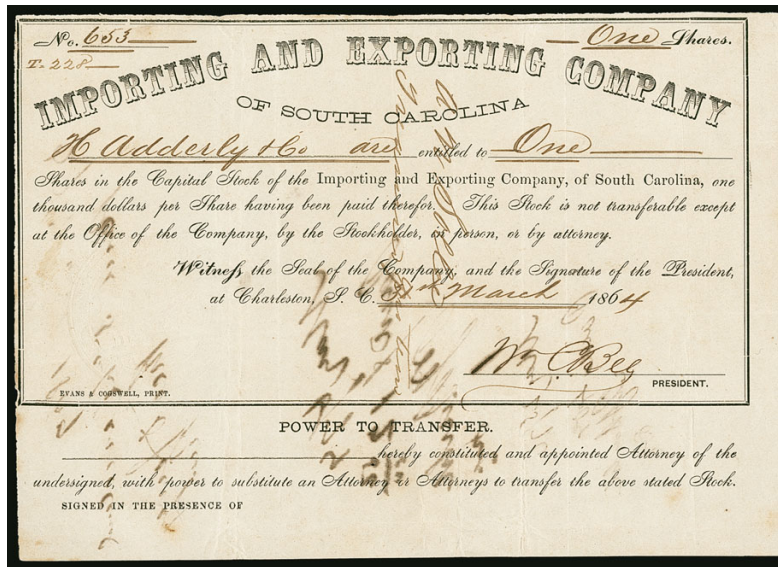 No. 653 One Shares.
T-228
IMPORTING AND EXPORTING COMPANY
OF SOUTH CAROLINA
H Adderly & Co are entitled to One
Shares in the Capital Stock of the Importing and Exporting Company, of South Carolina, one
thousand dollars per Share having been paid therefor. This Stock is not transferable except
at the Office of the Company, by the Stockholder, in person, or by attorney.
Witness the Seal of the Company, and the Signature of the President,
at Charleston, S. C. March 1864
Wm C Bee
PRESIDENT.
EVANS & COGSWELL, PRINT.
POWER TO TRANSFER.
hereby constituted and appointed Attorney of the
undersigned, with power to substitute an Attorney or Attorneys to transfer the above stated Stock.
SIGNED IN THE PRESENCE OF